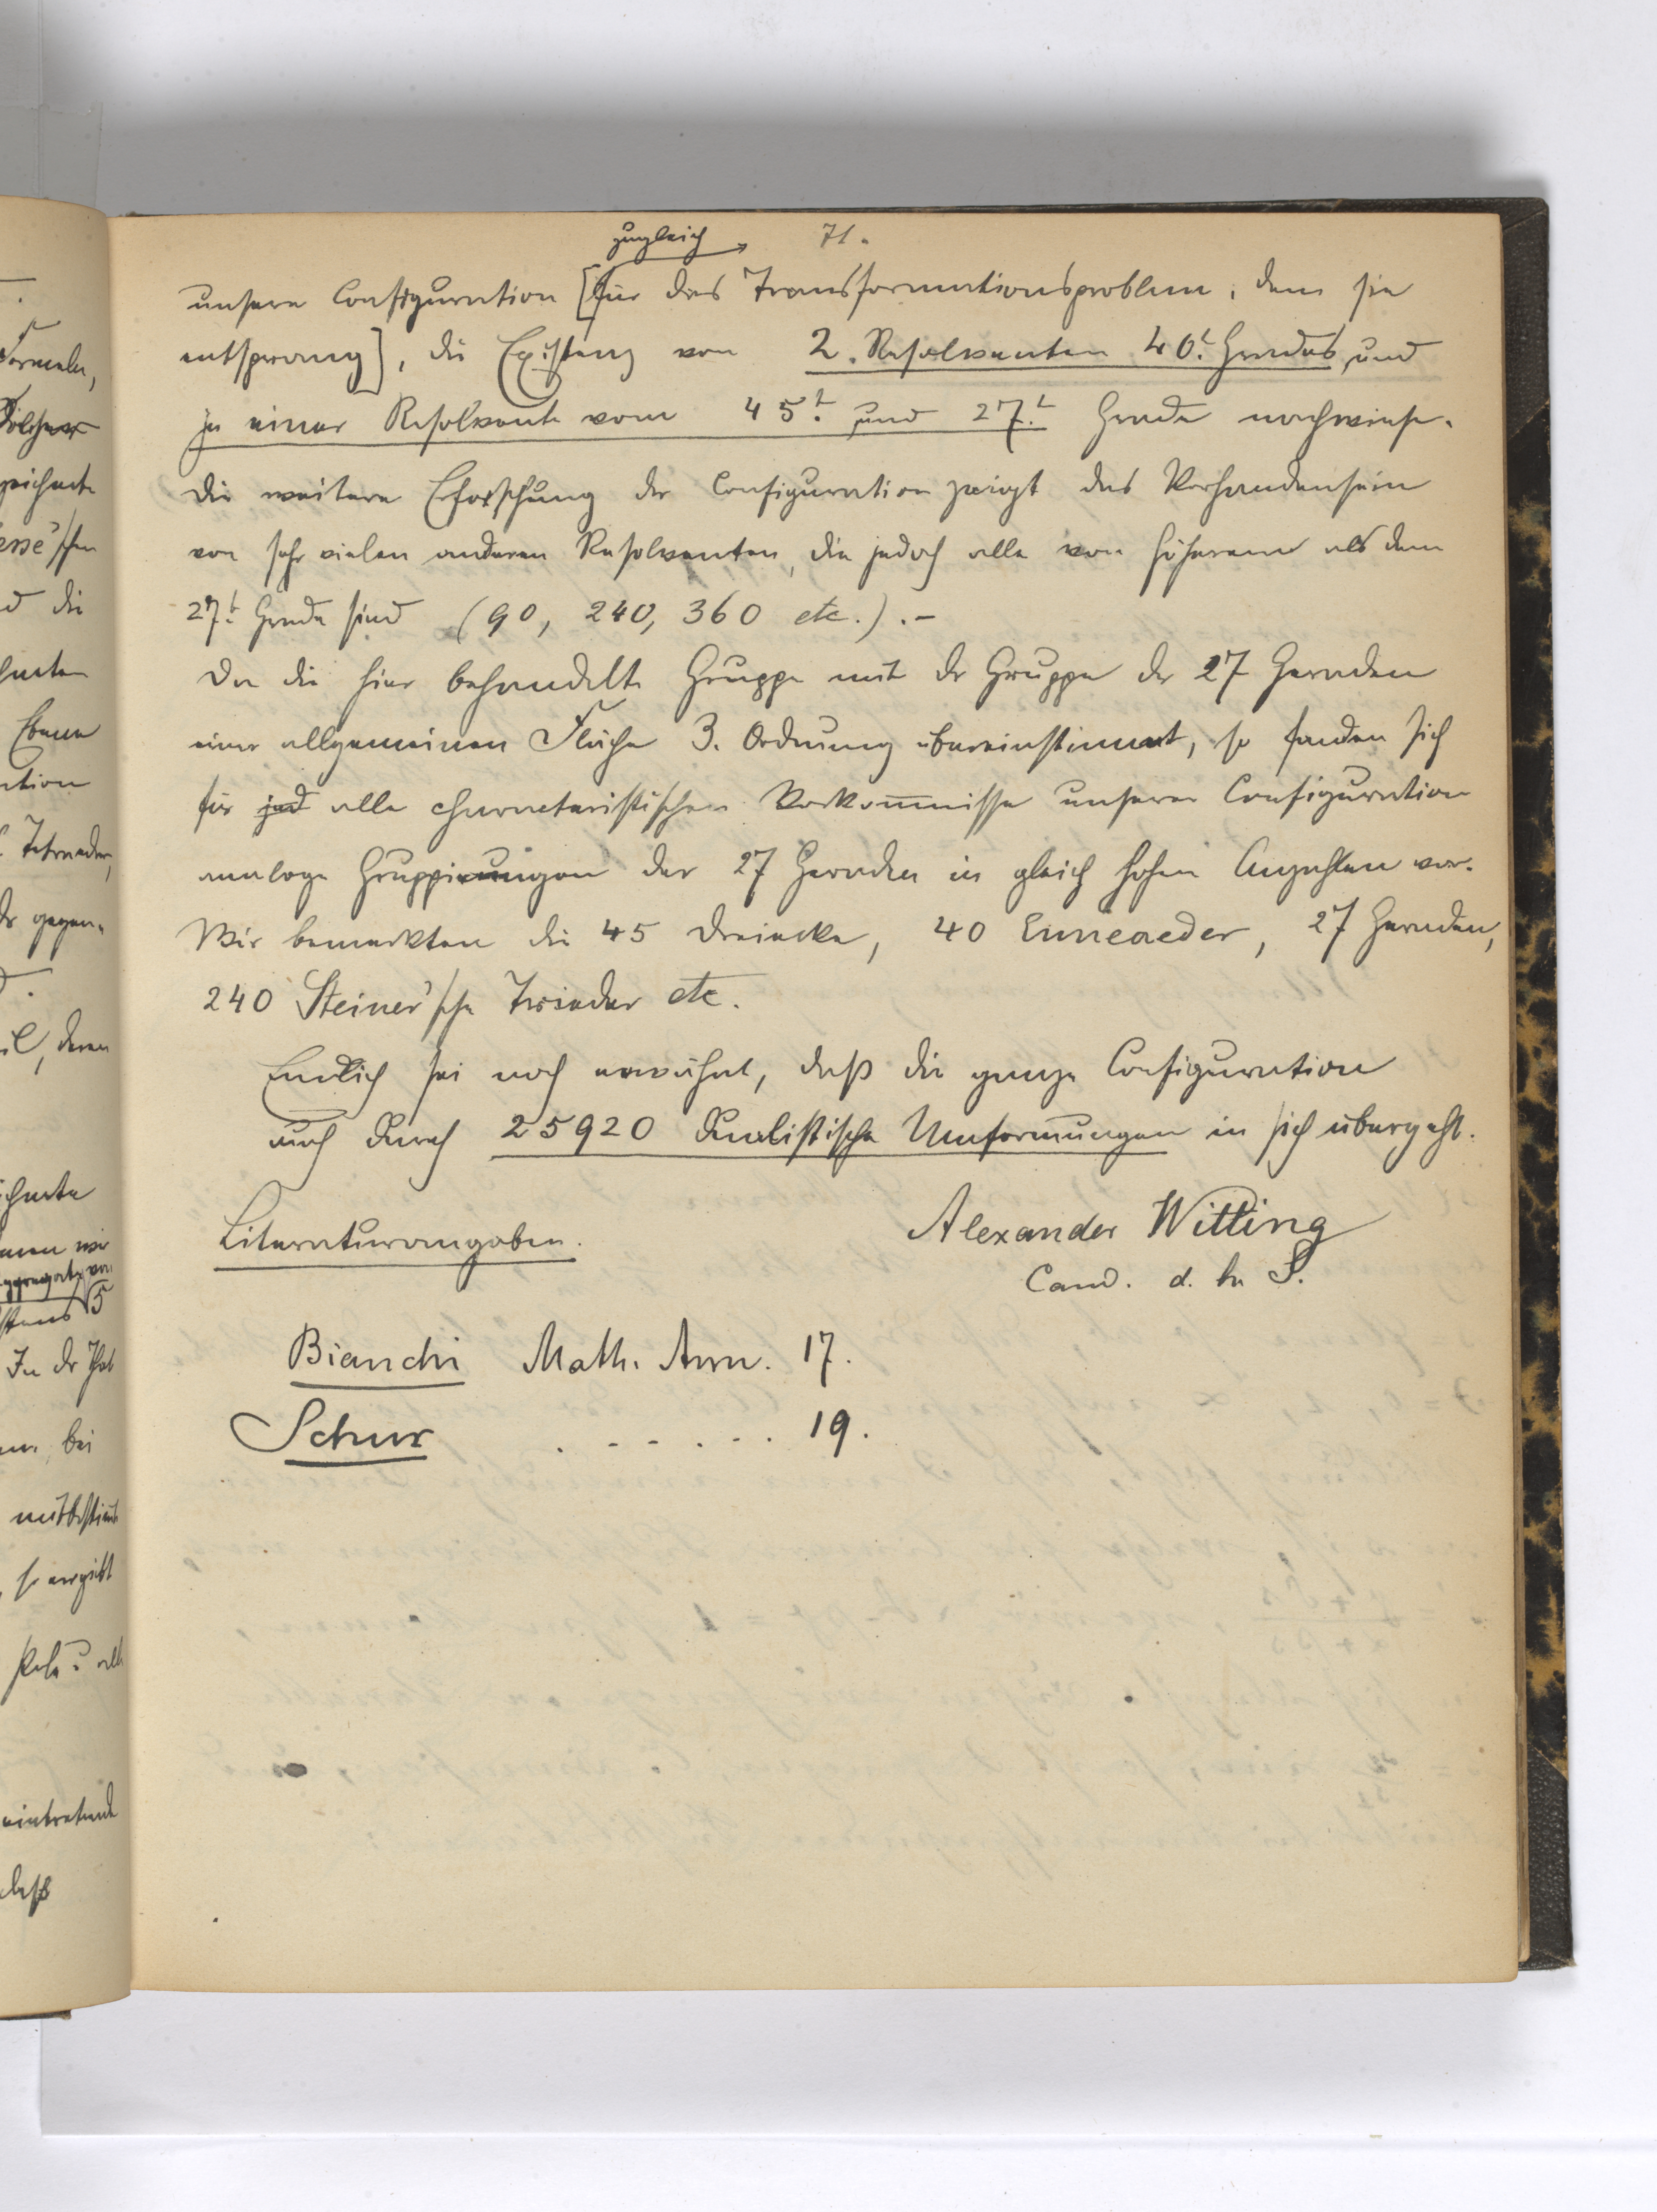 71.
zugleich
unsere Configuration [für das Transformationsproblem, dem sie
entsprang], die Existenz von 2. Resolventen 40t. Grades und
je einer Resolvente vom 45t. und 27t. Grade nachwiese.
Die weitere Erforschung der Configuration zeigt das Vorhandensein
von sehr vielen anderen Resolventen, die jedoch alle von höherem als dem
27t. Grade sind (90, 240, 360 etc.). –
Da die hier behandelte Gruppe mit der Gruppe der 27 Geraden
einer allgemeinen Fläche 3. Ordnung übereinstimmt, so fanden sich
für jed alle characteristischen Vorkommnisse unserer Configuration
analoge Gruppierungen der 27 Geraden in gleich hohen Anzahlen vor.
Wir bemerkten die 45 Dreiecke, 40 Enneaeder, 27 Geraden,
240 Steiner'sche Trieder etc.
Endlich sei noch erwähnt, daß die ganze Configuration
auch durch 25920 dualistische Umformungen in sich übergeht.
Alexander Witting
Cand. d. h. S.
Literaturangaben.
Bianchi Math. Ann. 17.
Schur . - - . - . 19.
Formeln,
zeichnete
esse'schen
d die
Ebene
ation
Tetraeder,
gegen-
il, deren
5
In der That
bei
mitbestimmt
so ergiebt
eintretende
daß